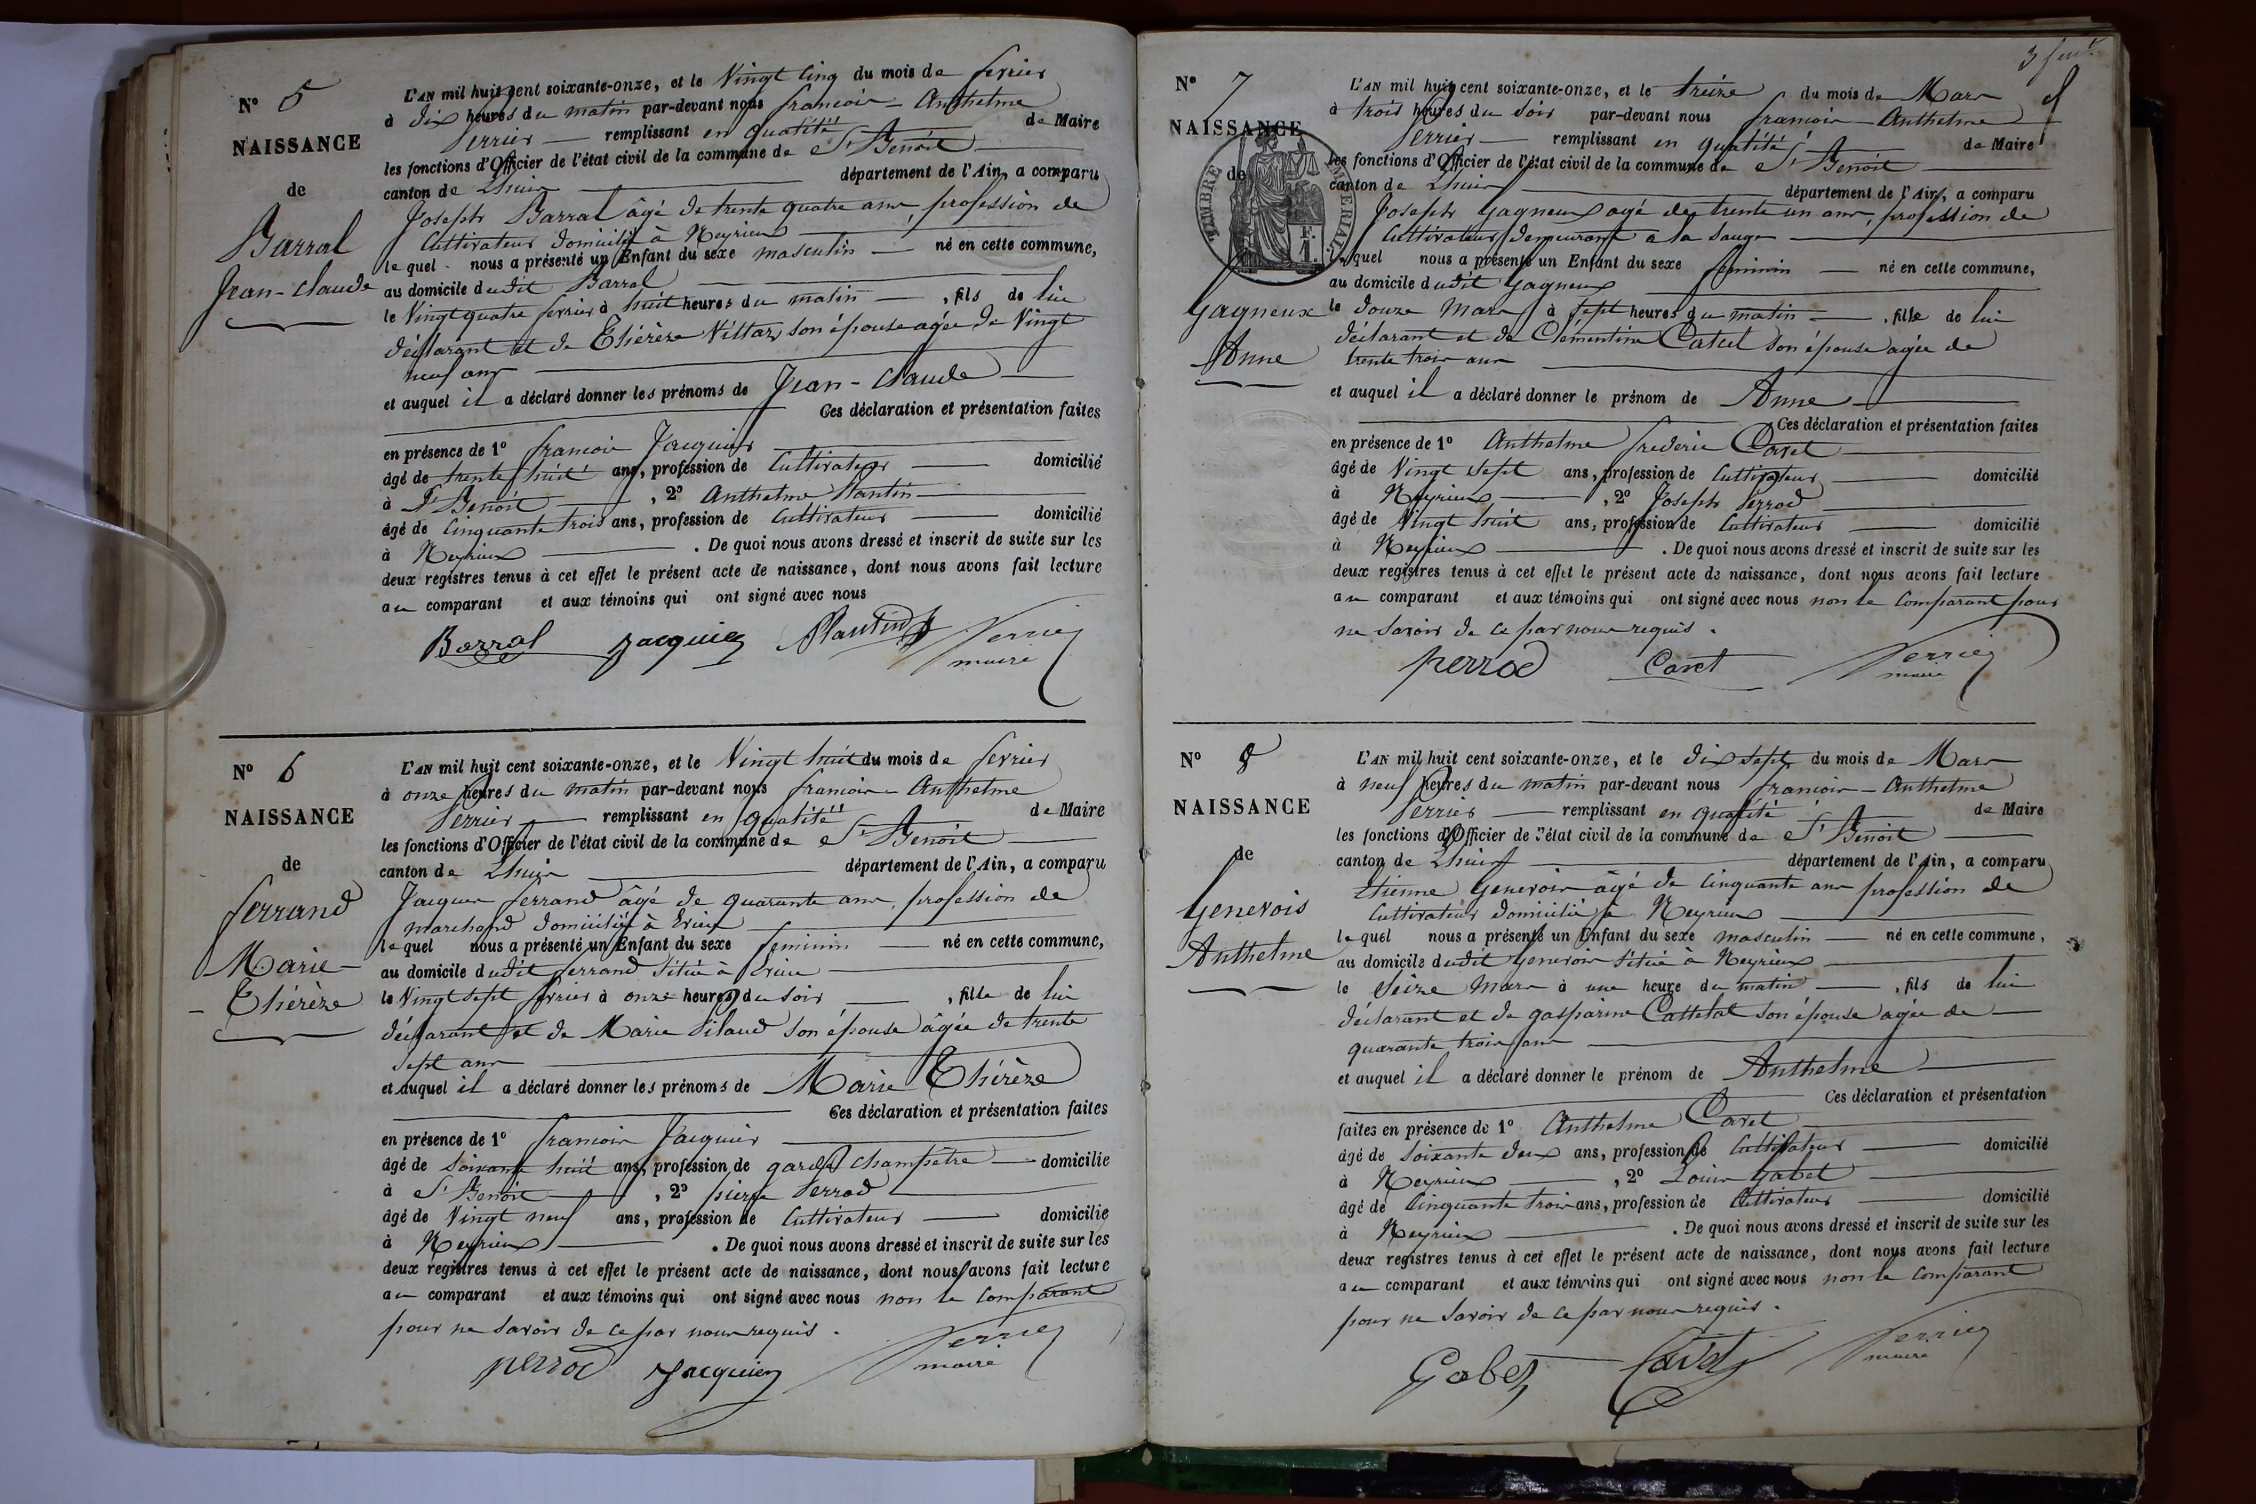 N° 5
NAISSANCE
de
Barral
Jean-Claude
L'AN mil huit cent soixante-onze, et le Vingt Cinq du mois de fevrier
à dix heures du matin par-devant nous françois Anthelme
Perrier remplissant en qualité de Maire
les fonctions d'Officier de l'état civil de la commune de St Benoit
canton de Lhuis département de l'Ain, a comparu
Joseph Barral âgé de trente quatre ans, profession de
Cultivateur domicilié à Neyrieux
lequel nous a présenté un Enfant du sexe masculin né en cette commune,
au domicile dudit Barral
le Vingt quatre fevrier à huit heures du matin, fils de lui
déclarant et de Thérèze Villaz son épouse agée de Vingt
neuf ans
et auquel il a déclaré donner les prénoms de Jean-Claude
Ces déclaration et présentation faites
en présence de 1° françois Jacquier
âgé de trente huit ans, profession de Cultivateur domicilié
à St Benoit, 2° Anthelme Plantin
âgé de Cinquante trois ans, profession de Cultivateur domicilié
à Neyrieux. De quoi nous avons dressé et inscrit de suite sur les
deux registres tenus à cet effet le présent acte de naissance, dont nous avons fait lecture
au comparant et aux témoins qui ont signé avec nous
Barral Jacquier Plantin Perrier
maire
N° 6
NAISSANCE
de
ferrand
Marie
Thérèze
L'AN mil huit cent soixante-onze, et le Vingt huit du mois de fevrier
à onze heures du matin par-devant nous françois Anthelme
Perrier remplissant en qualité de Maire
les fonctions d'Officier de l'état civil de la commune de St Benoit
canton de Lhuis département de l'Ain, a comparu
Jacques ferrand âgé de quarante ans, profession de
marchand domicilié à Evieu
lequel nous a présenté un Enfant du sexe feminin né en cette commune,
au domicile dudit ferrand situé à Evieu
le Vingt sept fevrier à onze heures du soir, fille de lui
déclarant et de Marie Pilaud son épouse âgée de trente
sept ans
et auquel il a déclaré donner les prénoms de Marie Thérèze
Ces déclaration et présentation faites
en présence de 1° françois Jacquier
âgé de soixante huit ans, profession de garde champêtre domicilié
à St Benoit, 2° pierre Perrod
âgé de Vingt neuf ans, profession de Cultivateur domicilié
à Neyrieux. De quoi nous avons dressé et inscrit de suite sur les
deux registres tenus à cet effet le présent acte de naissance, dont nous avons fait lecture
au comparant et aux témoins qui ont signé avec nous non le Comparant
pour ne savoir de ce par nous requis.
perrod Jacquier Perrier
maire
N° 7
NAISSANCE
de
TIMBRE IMPERIAL
Gagneux
Anne
L'AN mil huit cent soixante-onze, et le treize du mois de Mars
à trois heures du soir par-devant nous françois Anthelme
Perrier remplissant en qualité de Maire
les fonctions d'Officier de l'état civil de la commune de St Benoit
canton de Lhuis département de l'Ain, a comparu
Joseph Gagneux agé de trente un ans, profession de
Cultivateur demeurant a la Sauge
lequel nous a présenté un Enfant du sexe feminin né en cette commune,
au domicile dudit Gagneux
le douze Mars à sept heures du matin, fille de lui
déclarant et de Clémentine Catcel son épouse agée de
trente trois ans
et auquel il a déclaré donner le prénom de Anne
Ces déclaration et présentation faites
en présence de 1° Anthelme frederic Cavet
âgé de Vingt sept ans, profession de Cultivateur domicilié
à Neyrieux, 2° Joseph Perrod
âgé de Vingt huit ans, profession de Cultivateur domicilié
à Neyrieux. De quoi nous avons dressé et inscrit de suite sur les
deux registres tenus à cet effet le présent acte de naissance, dont nous avons fait lecture
au comparant et aux témoins qui ont signé avec nous non le Comparant pour
ne savoir de ce par nous requis.
perrod Cavet Perrier
maire
N° 8
NAISSANCE
de
Genevois
Anthelme
L'AN mil huit cent soixante-onze, et le dix sept du mois de Mars
à neuf heures du matin par-devant nous françois Anthelme
Perrier remplissant en qualité de Maire
les fonctions d'Officier de l'état civil de la commune de St Benoit
canton de Lhuis département de l'Ain, a comparu
Etienne Genevois âgé de Cinquante ans profession de
Cultivateur domicilié à Neyrieux
lequel nous a présenté un Enfant du sexe masculin né en cette commune,
au domicile dudit Genevois situé à Neyrieux
le Seize Mars à une heure du matin, fils de lui
déclarant et de gasparine Cattelat son épouse agée de
quarante trois ans
et auquel il a déclaré donner le prénom de Anthelme
Ces déclaration et présentation
faites en présence de 1° Anthelme Cavet
âgé de Soixante deux ans, profession de Cultivateur domicilié
à Neyrieux, 2° Louis Gabet
âgé de Cinquante trois ans, profession de Cultivateur domicilié
à Neyrieux. De quoi nous avons dressé et inscrit de suite sur les
deux registres tenus à cet effet le présent acte de naissance, dont nous avons fait lecture
au comparant et aux témoins qui ont signé avec nous non le Comparant
pour ne savoir de ce par nous requis.
Gabet Cavet Perrier
maire